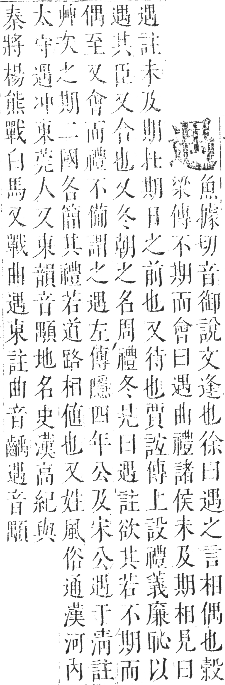 魚據切音御說文逢也徐曰遇之言相偶也穀
梁傳不期而會曰遇曲禮諸侯未及期相見曰
遇註未及期在期日之前也又待也賈誼傳上設禮義廉恥以
遇其臣又合也又冬朝之名周禮冬見曰遇註欲其若不期而
偶至又會而禮不備謂之遇左傳隱四年公及宋公遇于淸註
艸次之期二國各簡其禮若道路相値也又姓風俗通漢河內
太守遇冲東莞人又東韻音顒地名史漢高紀與
秦將楊熊戰白馬又戰曲遇東註曲音齲遇音顒